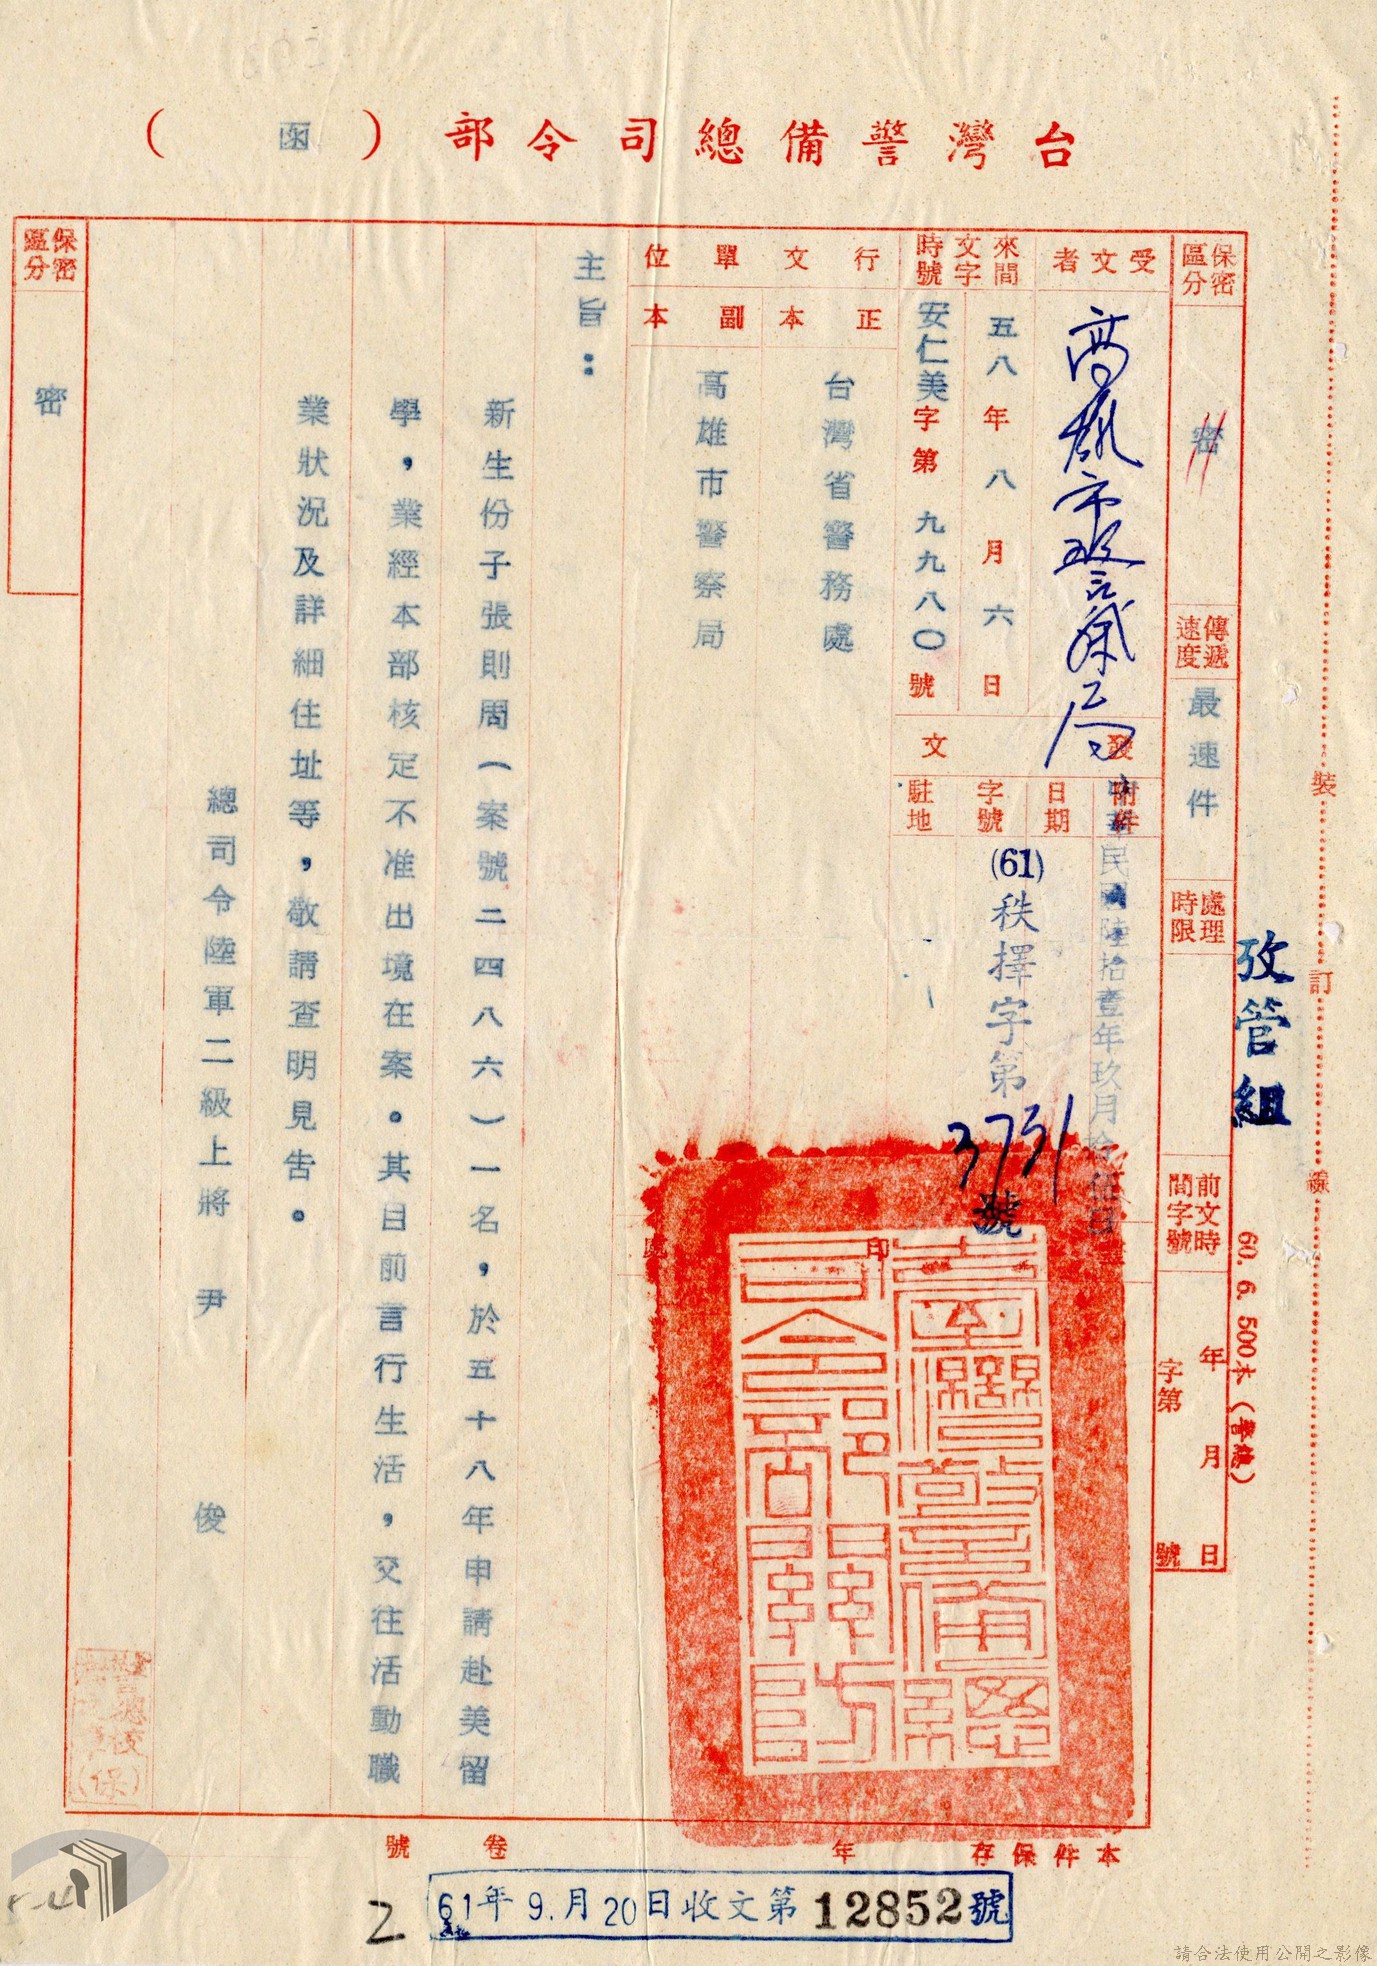 台灣警備總司令部（函）
保密區分
密
傳遞速度
最速件
處理時限
前文時間字號
年月日
字第
號
受文者
高雄市警察局
來文時間字號
五八年八月六日
安仁美字第九九八〇號
行文單位
正本
台灣省警務處
副本
高雄市警察局
發文
附件
日期
中華民國陸拾壹年玖月拾伍日
字號
(61)秩擇字第3731號
駐地
印
臺灣警備總司令部關防
主旨：
新生份子張則周（案號二四八六）一名，於五十八年申請赴美留
學，業經本部核定不准出境在案。其目前言行生活，交往活動職
業狀況及詳細住址等，敬請查明見告。
總司令陸軍二級上將 尹 俊
保密區分
密
攷管組
裝
訂
線
60. 6. 500本（警總）
本件保存 年
卷 號
61年9.月20日收文第12852號
2
請合法使用公開之影像